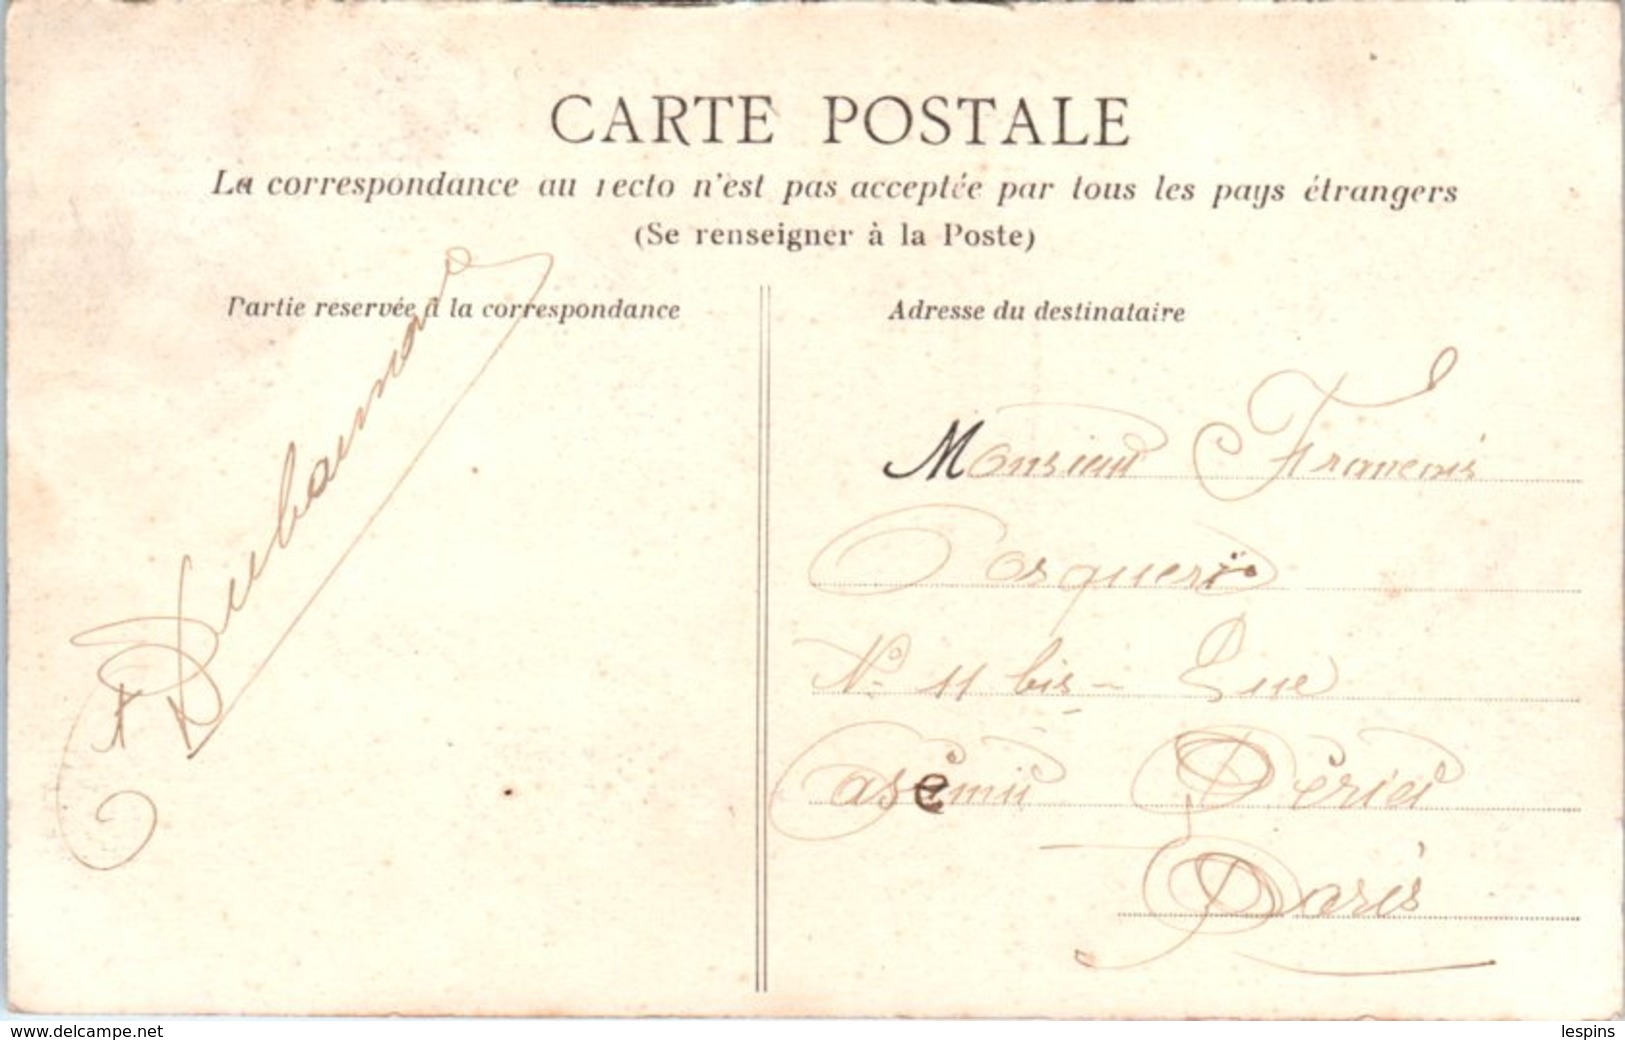 CARTE POSTALE
La correspondance au recto n'est pas acceptée par tous les pays étrangers
(Se renseigner à la Poste)
Partie reservée à la correspondance
Adresse du destinataire
Monsieur François
N° 11 bis - Rue
Casimir Périer
Paris
www.delcampe.net
lespins